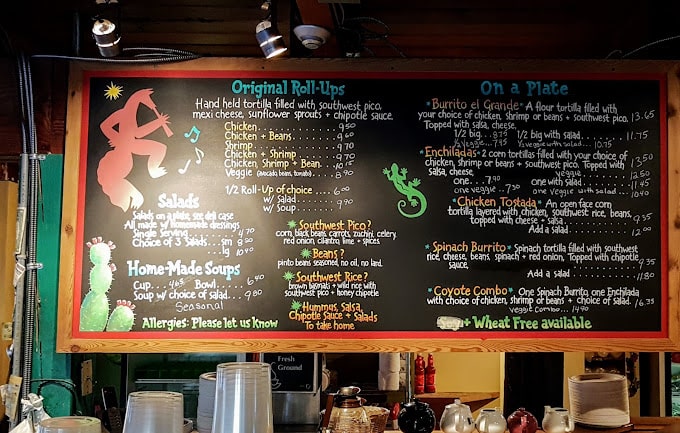 Original Roll-Ups
Hand held tortilla filled with southwest pico,
mexi cheese, sunflower sprouts + chipotle sauce.
Chicken 9.50
Chicken + Beans 9.60
Shrimp 9.70
Chicken + Shrimp 9.70
Chicken, Shrimp, Bean 10.
Veggie (Avocado, beans, tomato) 8.90
1/2 Roll-Up of choice 6.00
w/ Salad 9.90
w/ Soup 9.90
Salads
Salads on a plate, see deli case
All made w/ homemade dressings
Single Serving 4.70
Choice of 3 Salads sm 8.80
lg 10.40
Home-Made Soups
Cup 4.65 Bowl 6.40
Soup w/ choice of salad 9.80
Seasonal
Allergies: Please let us know
Southwest Pico?
corn, black beans, carrots, zucchini, celery,
red onion, cilantro, lime + spices
Beans?
pinto beans seasoned, no oil, no lard.
Southwest Rice?
brown basmati + wild rice with
southwest pico + honey chipotle
Hummus, Salsa,
Chipotle Sauce + Salads
To take home
On a Plate
Burrito el Grande A flour tortilla filled with
your choice of chicken, shrimp or beans + southwest pico. 13.65
Topped with salsa, cheese,
1/2 big 8.75 1/2 big with salad 11.75
1/2 veggie 7.95 1/2 veggie with salad 10.75
Enchiladas 2 corn tortillas filled with your choice of
chicken, shrimp or beans + southwest pico. Topped with 13.50
salsa, cheese, veggie 12.50
one 7.90 one with salad 11.45
one veggie 7.30 one veggie with salad 10.40
Chicken Tostada An open face corn
tortilla layered with chicken, southwest rice, beans,
topped with cheese + salsa 9.35
Add a salad 12.00
Spinach Burrito Spinach tortilla filled with southwest
rice, cheese, beans, spinach + red onion. Topped with chipotle
sauce, 9.35
Add a salad 11.80
Coyote Combo One Spinach Burrito, one Enchilada
with choice of chicken, shrimp or beans + choice of salad. 16.35
veggie Combo 14.90
+ Wheat Free available
Fresh
Ground